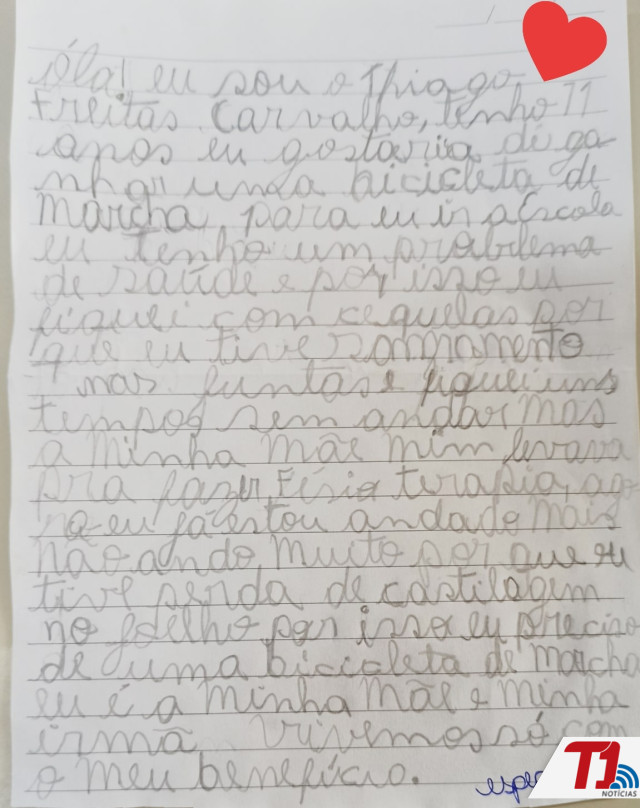 Ola! eu sou o Thiago
Freitas Carvalho, tenho 11
anos eu gostaria de ga
nhar uma bicicleta de
marcha para eu ir a Escola
eu tenho um problema
de saúde e por isso eu
fiquei com cequelas por
que eu tive sangramento
nas juntas e fiquei uns
tempos sem andar mas
a minha mãe mim levava
pra fazer Fésio terapia, ago
ra eu já estou andado mais
não ando muito por que eu
tive perda de castilagem
no joelho por isso eu preciso
de uma bicicleta de marcha
eu é a minha mãe e minha
irmã vivemos só com
o meu benefício.
T1
NOTÍCIAS